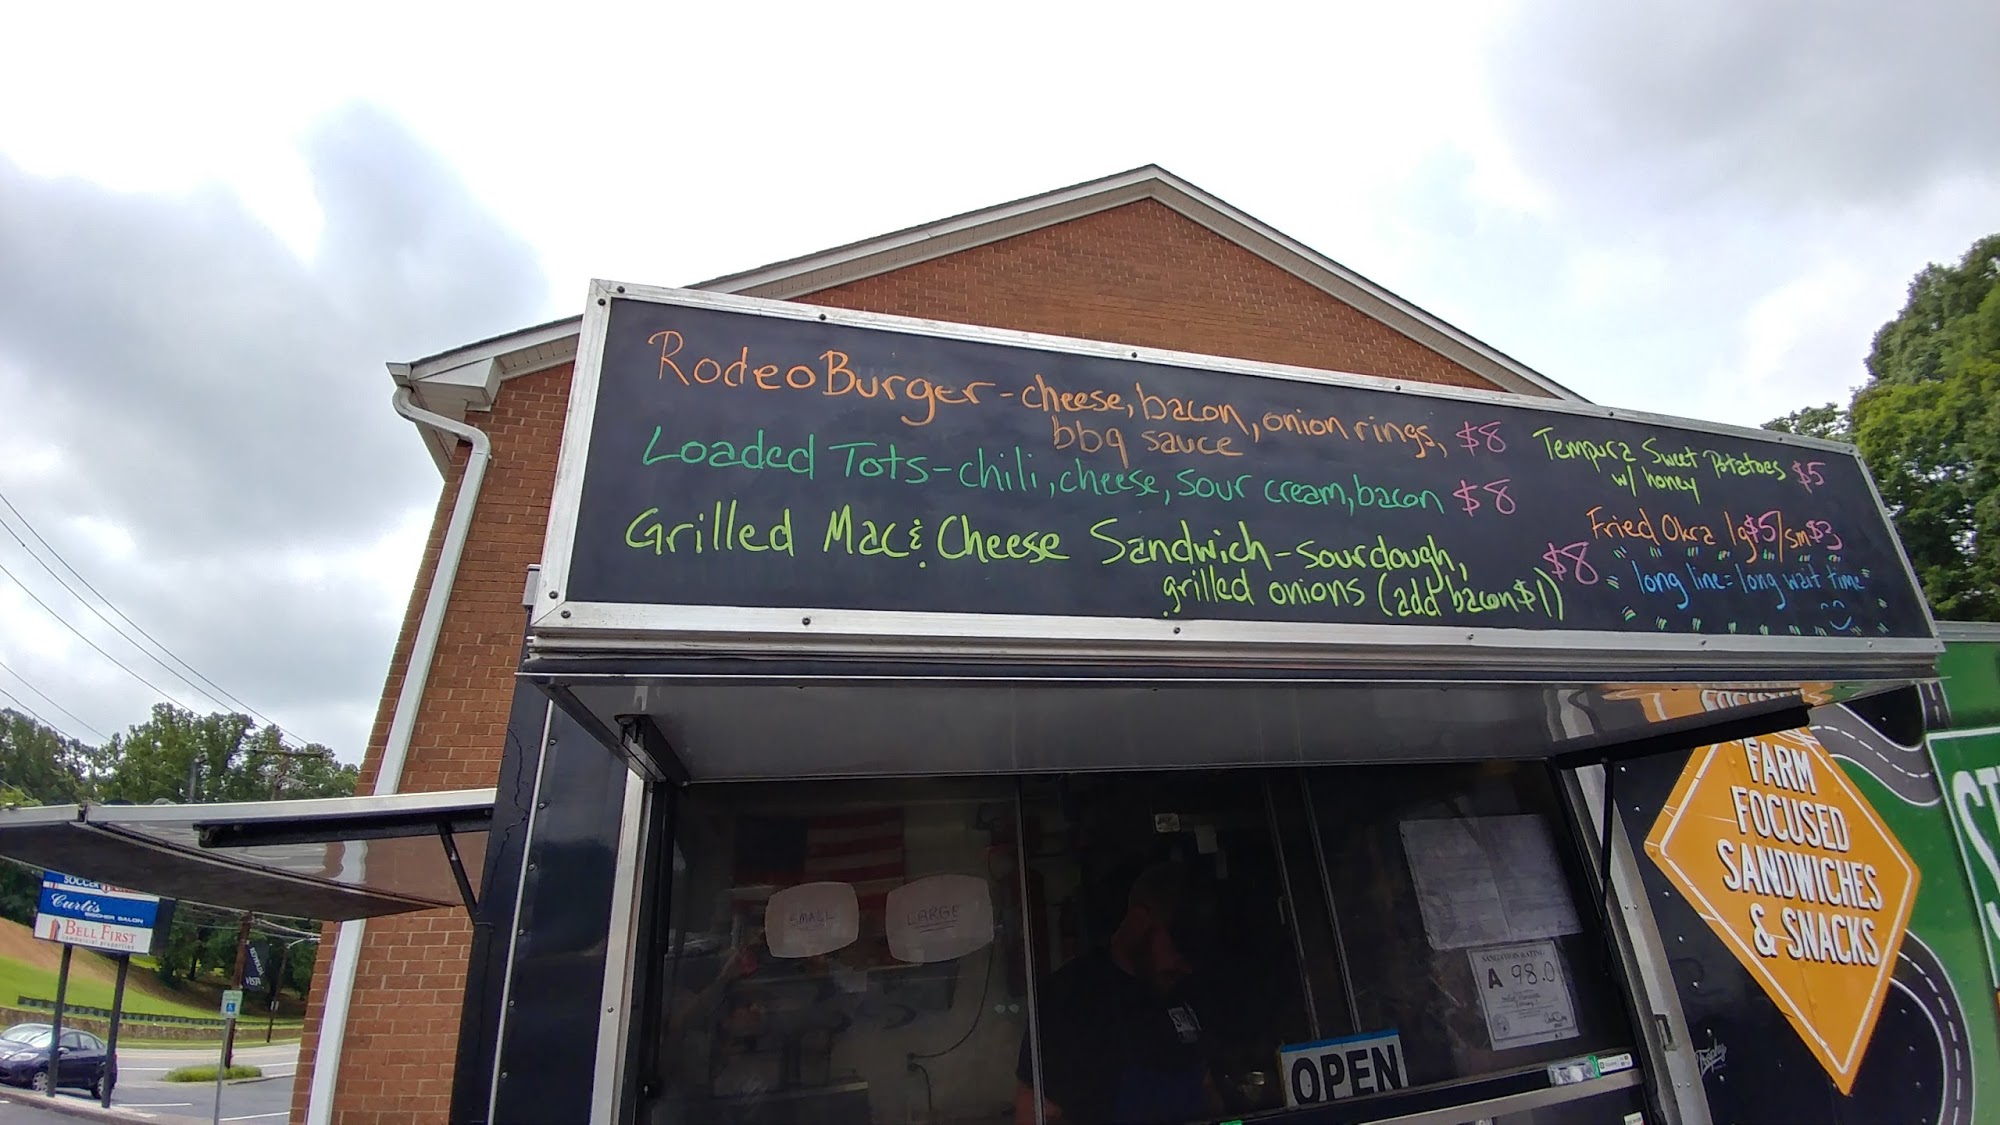 Rodeo Burger - cheese, bacon, onion rings, $8
bbq sauce
Loaded Tots - chili, cheese, sour cream, bacon $8
Grilled Mac & Cheese Sandwich - sourdough, $8
grilled onions (add bacon $1)
Tempura Sweet Potatoes $5
w/ honey
Fried Okra lg $5/sm $3
long line = long wait time
FARM
FOCUSED
SANDWICHES
& SNACKS
SMALL
LARGE
SANITATION RATING
A 98.0
OPEN
SOCCER
Curtis
BELL FIRST
VISTA